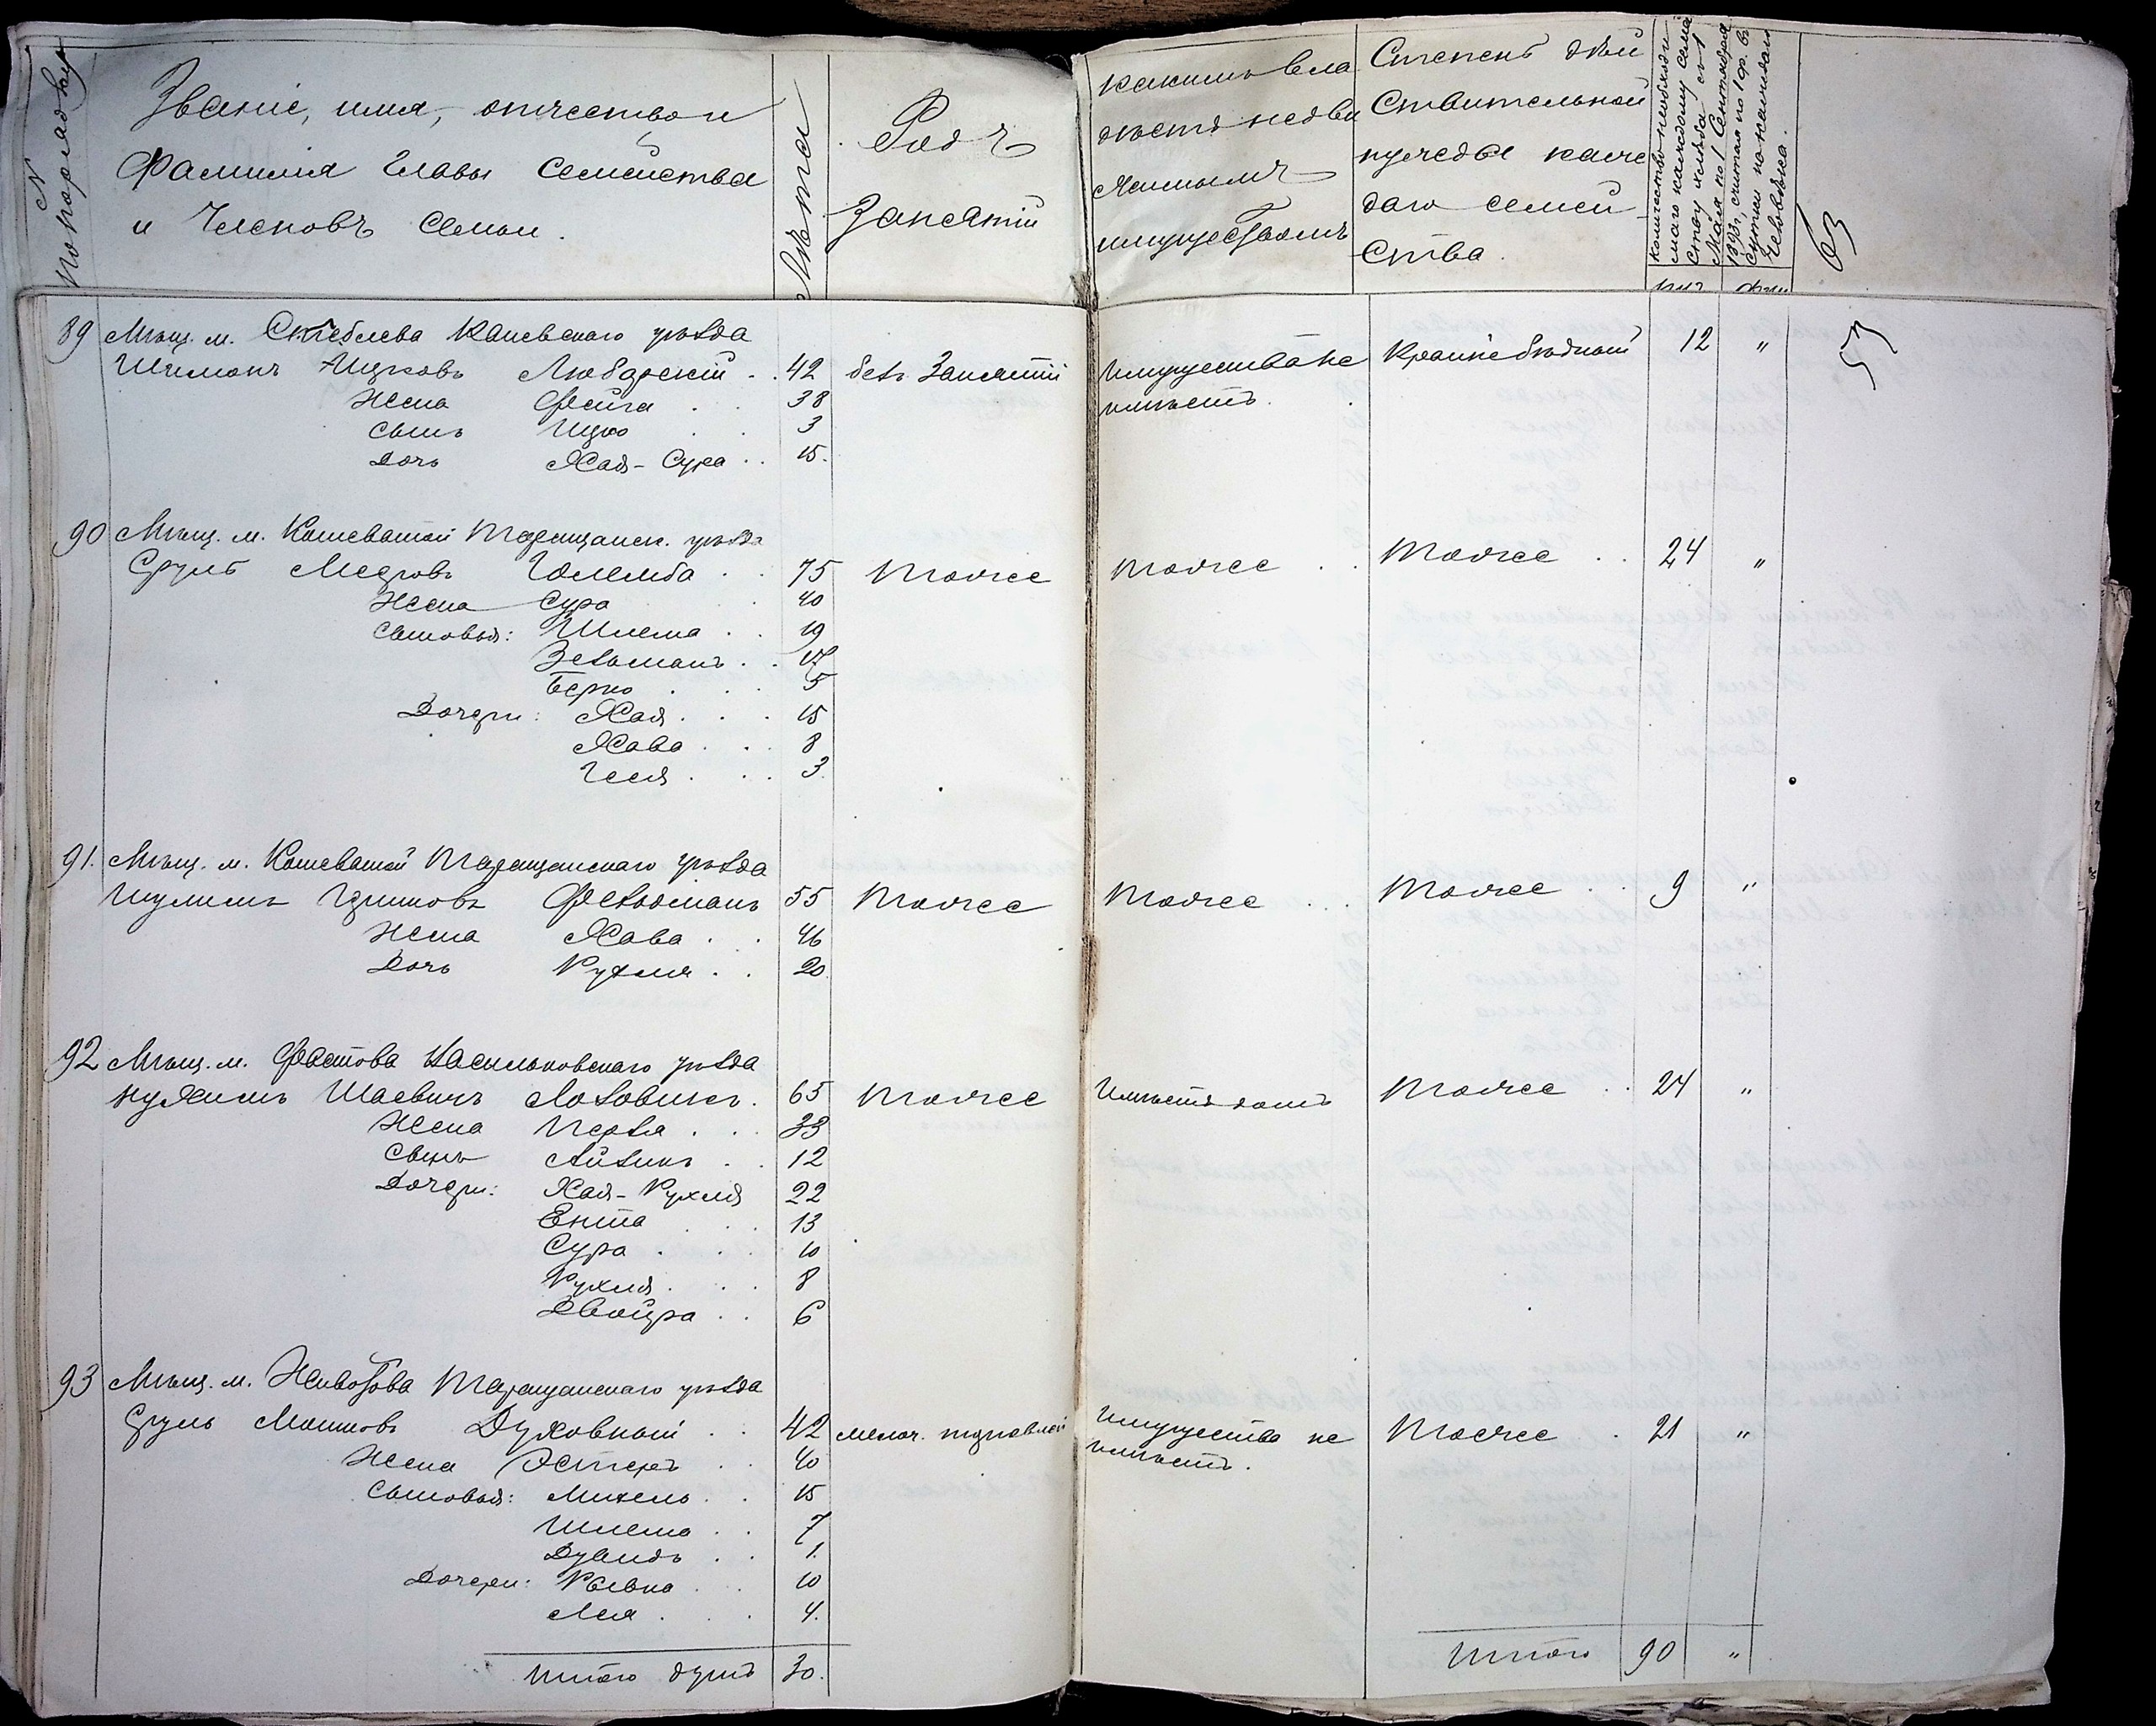 № по порядку
Званіе, имя, отчество и
фамилія главы семейства
и членовъ семьи.
Лѣта
Родъ
занятій
какимъ вла
дѣетъ недви
жимымъ
имуществомъ
Степень дѣй
ствительной
нужды кажд
даго семей
ства.
количество необходи
маго каждому семей
ству хлѣба съ 1
Мая по 1 Сентября
1893, считая по 1 ф. въ
сутки на каждаго
человѣка.
пуд фун
63
89 Мѣщ. м. Стеблева Каневскаго уѣзда
Шимонъ Ицковъ Любарскій . . 42 безъ занятій Имущества не Крайне бѣдный 12 "
имѣетъ.
53
Жена Фейга . . 38
Сынъ Ицко . . 3
Дочь Хая-Сура . . 15.
90 Мѣщ. м. Кошеватой Таращанск. уѣзда
Сруль Мееровъ Големба . . 75 Тоже Тоже . . Тоже . . 24 "
Жена Сура . 40
Сыновья: Шлема . . 19
Зельманъ . . 17
Берко . . . 5
Дочери: Хая . . . 15
Хава . . . 8
Геля . . . 3.
91. Мѣщ. м. Кошеватой Таращанскаго уѣзда
Шулимъ Гершковъ Фельдманъ 55 Тоже Тоже . . . Тоже . . 9 "
Жена Хава . . 46
Дочь Рухля . . 20
92 Мѣщ. м. Фастова Васильковскаго уѣзда
Нухимъ Шаевичъ Лозовикъ. 65 Тоже Имѣетъ домъ Тоже . . 24 "
Жена Перля . . . 33
Сынъ Айзикъ . . 12
Дочери: Хая-Рухля 22
Ента . . 13
Сура . . . 10
Рухля . . . 8
Двойра . . 6
93 Мѣщ. м. Животова Таращанскаго уѣзда
Сруль Мошковъ Духовный . . 42 мелоч. торговлей Имущества не Тоже . 21 "
имѣетъ.
Жена Эстеръ . . 40
Сыновья: Михель . . 15
Шлема . . 7
Дувидъ . . 1.
Дочери: Ривка . . 10
Лея . . . 4.
Итого душъ 30.
Итого 90 "